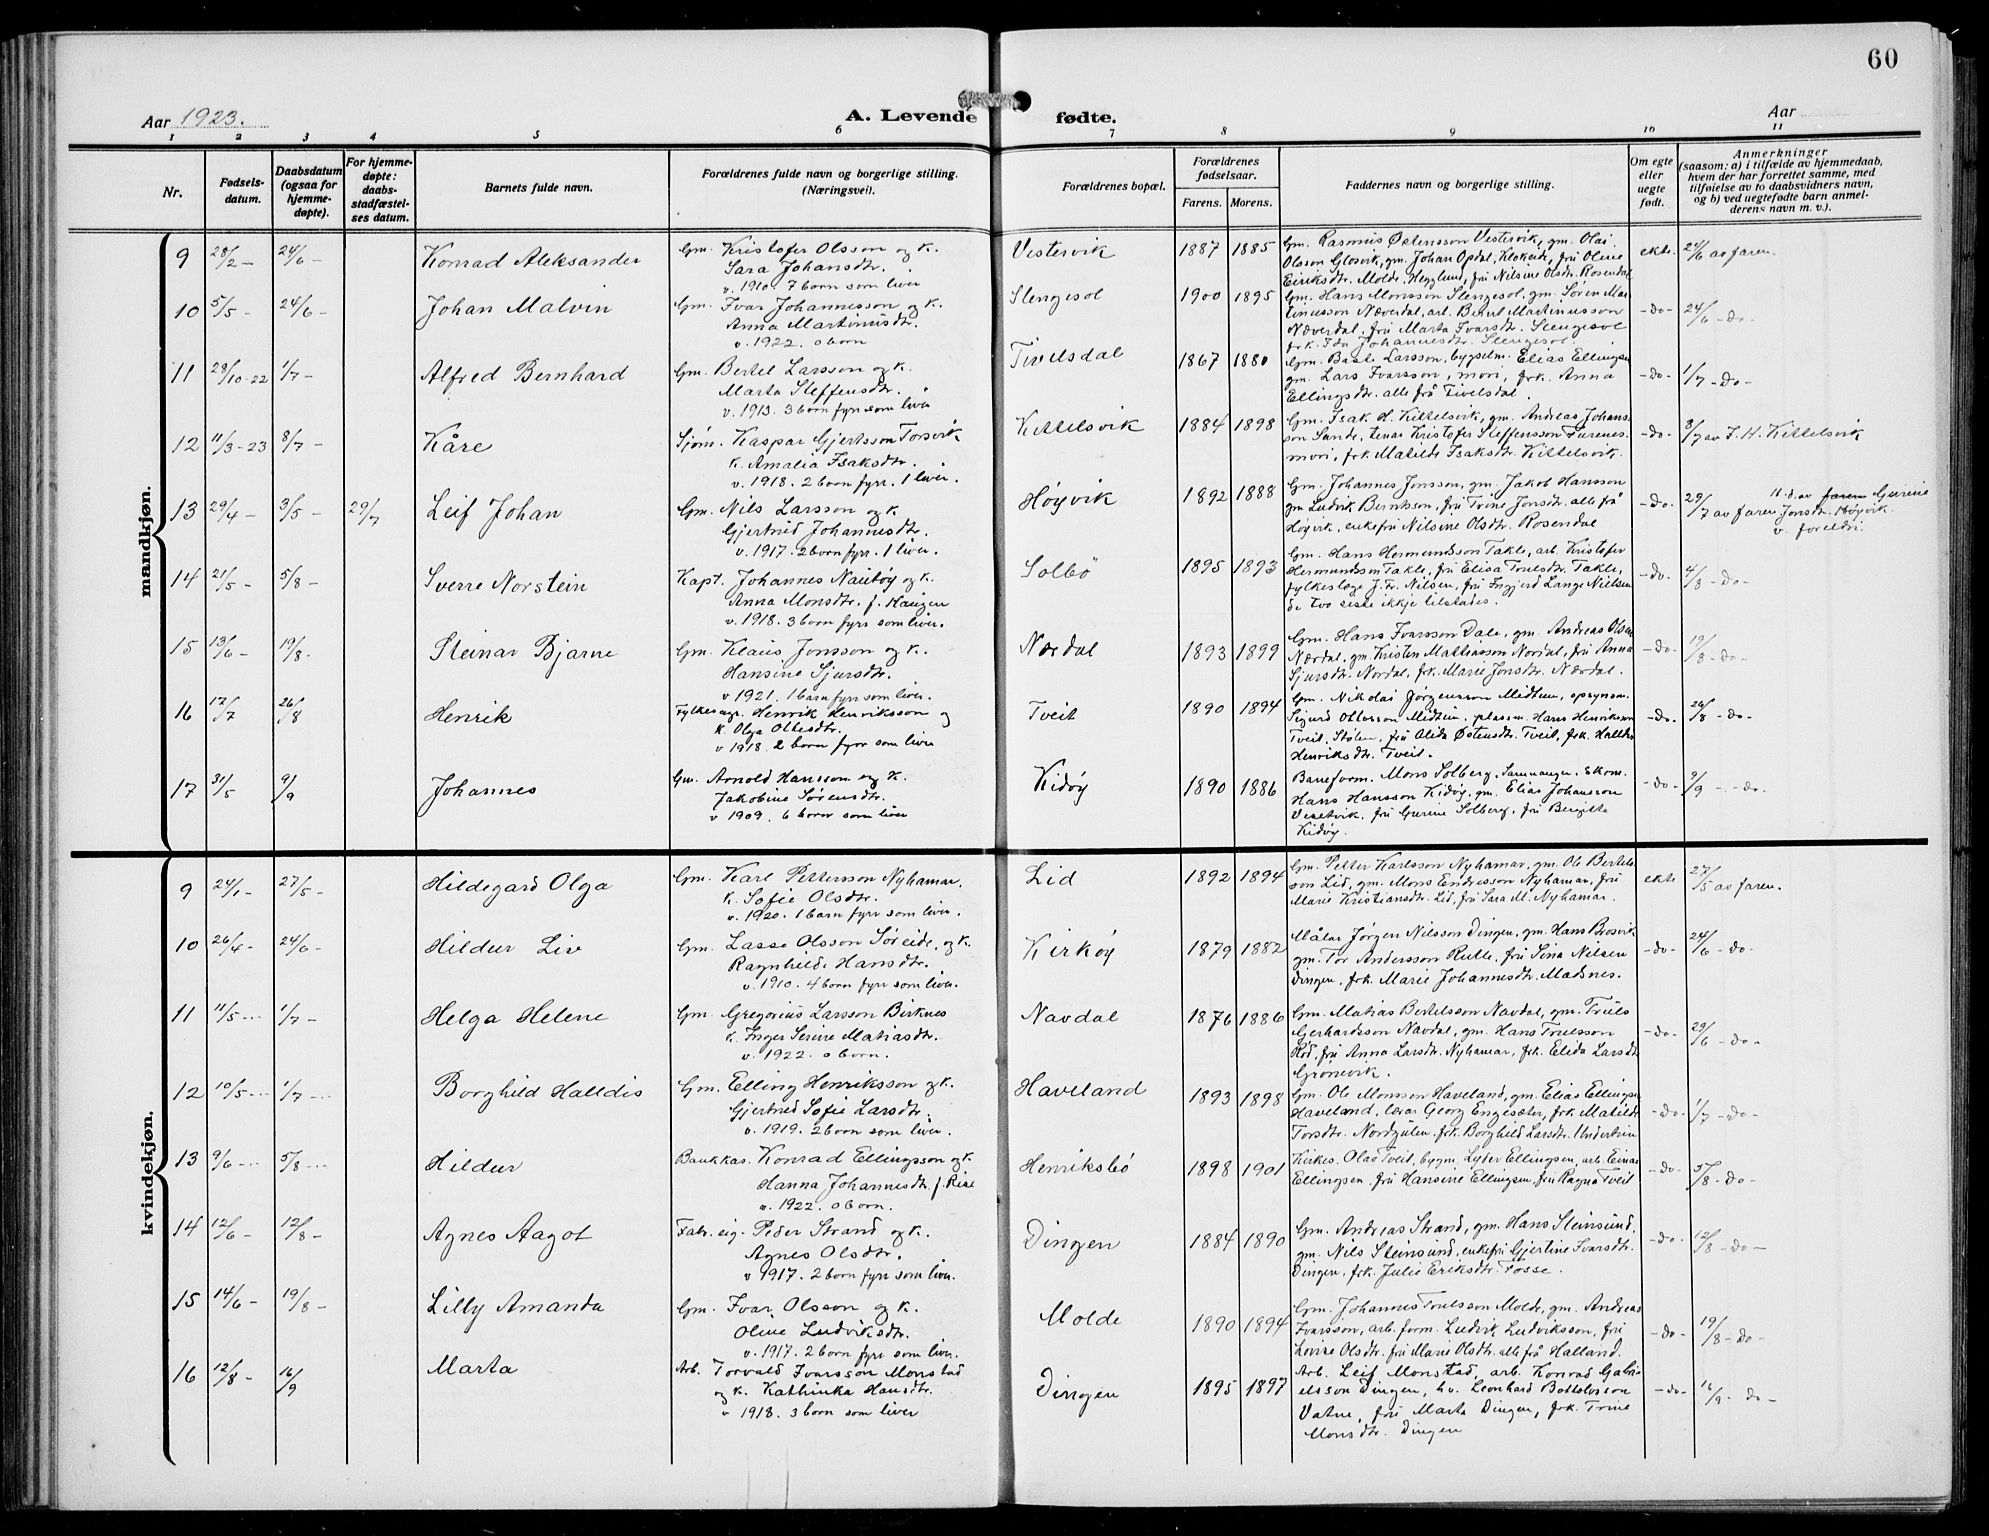 60
Aar 1923.
A. Levende fødte.
Aar
1 2 3 4 5 6 7 8 9 10 11
Nr.
Fødsels-
datum.
Daabsdatum
(ogsaa for
hjemme-
døpte).
For hjemme-
døpte:
daabs-
stadfæstel-
ses datum.
Barnets fulde navn.
Forældrenes fulde navn og borgerlige stilling.
(Næringsvei).
Forældrenes bopæl.
Forældrenes
fødselsaar.
Farens. Morens.
Faddernes navn og borgerlige stilling.
Om egte
eller
uegte
født.
Anmerkninger
(saasom: a) i tilfælde av hjemmedaab,
hvem der har forrettet samme, med
tilføielse av to daabsvidners navn,
og b) ved uegtefødte barn anmel-
derens navn m. v.).
mandkjøn.
9 28/2 – 24/6 – Konrad Aleksander
Gm. Kristofer Olsson og k.
Sara Johansdtr.
v. 1910. 7 born som liver
Vestervik 1887 1885
Gm. Rasmus Østensson Vestervik, gm. Olai
Olsson Glosvik, gm. Johan Opdal, Klokeide, fru Oline
Eiriksdtr. Molde, Hegglund, fru Nilsine Olsdtr. Rosendal
ekte. 24/6 av faren.
10 5/5 – 24/6 – Johan Malvin
Gm. Ivar Johannesson og k.
Anna Martinusdtr.
v. 1922. 0 born
Slengesol 1900 1895
Gm. Hans Monsson Slengesol, gm. Søren Mar-
tinusson Næverdal, arb. Bernt Martinusson
Næverdal, fru Marta Ivarsdtr. Slengesol
frk. Ida Johannesdtr. Slengesol.
–do– 24/6 –do–
11 28/10-22 1/7 – Alfred Bernhard
Gm. Bertel Larsson og k.
Marta Steffensdtr.
v. 1913. 3 born fyrr som liver
Tivelsdal 1867 1880
Gm. Larsson, bygselm. Elias Ellingsen
gm. Lars Ivarsson, mori, frk. Anna
Ellingsdtr. alle frå Tivelsdal.
–do– 1/7 –do–
12 11/3-23 8/7 – Kåre
Sjøm. Kaspar Gjertsson Torsvik
k. Amalia Isaksdtr.
v. 1918. 2 born fyrr. 1 liver.
Kittelsvik 1884 1898
Gm. Isak H. Kittelsvik, gm. Andreas Johans-
son Sande, tenar Kristofer Steffensson Furenes.
mori, frk. Matilde Isaksdtr. Kittelsvik.
–do– 8/7 av I. H. Kittelsvik
13 29/4 – 3/5 – 29/7 Leif Johan
Gm. Nils Larsson og k.
Gjertrud Johannesdtr.
v. 1917. 2 born fyrr. 1 liver.
Høyvik 1892 1888
Gm. Johannes Jonsson, gm. Jakob Hansson
gm Ludvik Berntson, fru Trine Jonsdtr. alle frå
Høyvik, enkefru Nilsine Olsdtr. Rosendal
–do– 29/7 av faren
H. d. av faren Gurine
Jonsdtr. Høyvik
v. foreldri.
14 21/5 – 5/8 – Sverre Norstein
Kapt. Johannes Nautøy og k.
Anna Monsdtr. f. Haugen
v. 1918. 3 born fyrr som liver.
Solbø 1895 1893
Gm. Hans Hermundsson Takle, arb. Kristofer
Hermundsson Takle, fru Elisa Trulsdtr. Takle,
fylkeslæge J. Fr. Nilsen, fru Ingjerd Lange Nielsen
de tvo siste ikkje tilstades.
–do– 4/8 –do–
15 13/6 – 19/8 – Steinar Bjarne
Gm. Klaus Jonsson og k.
Hansine Sjursdtr.
v. 1921. 1 barn fyrr som liver.
Nærdal 1893 1899
Gm. Hans Ivarsson Dale, gm. Andreas Olsen
Nærdal, gm. Kristen Mattiasson Nordal, fru Anna
Sjursdtr. Nordal, frk. Marie Jonsdtr. Nærdal.
–do– 19/8 –do–
16 17/7 26/8 Henrik
Fylkesagr. Henrik Henriksson og
k. Olga Ottesdtr.
v 1918. 2 born fyrr som liver
Tveit 1890 1894
Gm. Nikolai Jørgensson Midttun, opsynsm.
Sigurd Ottosson Midttun, plassm. Hans Henriksson
Tveit, Stølen, fru Alida Østensdtr. Tveit, frk. Halldis
Henriksdtr. Tveit.
–do– 26/8 –do–
17 31/5 9/9 Johannes
Gm. Arnold Hansson og k.
Jakobine Sørensdtr.
v 1909. 6 born som liver
Kidøy 1890 1886
Baneform. Mons Solberg, Samnanger, skom.
Hans Hansson Kidøy, gm. Elias Johansson
Visetvik, fru Gurine Solberg, fru Bergitte
Kidøy.
–do– 9/9 –do–
kvindekjøn.
9 24/1 – 27/5 – Hildegard Olga
Gm. Karl Pettersson Nyhamar.
k. Sofie Olsdtr.
v. 1920. 1 barn fyrr som liver.
Lid 1892 1894
Gm. Petter Karlsson Nyhamar, gm. Ole Bertels-
son Lid, gm. Mons Endresson Nyhamar, fru
Marie Kristiansdtr. Lid, fru Sara M. Nyhamar.
ekte 27/5 av faren.
10 26/4 – 24/6 – Hildur Liv
Gm. Lasse Olsson Søreide, og k.
Ragnhild Hansdtr.
v. 1910. 4 born fyrr som liver.
Kirkøy 1879 1882
Målar Jørgen Nilsson Dingen, gm. Hans Brosvik
gm. Tor Andersson Rutle, fru Sina Nilsen
Dingen, frk. Marie Johannesdtr. Madsnes.
–do– 24/6 –do–
11 11/5 – 1/7 – Helga Helene
Gm. Gregorius Larsson Birknes
k. Inger Serine Matiasdtr.
v. 1922. 0 born.
Navdal 1876 1886
Gm. Matias Bertelsson Navdal, gm. Truls
Gerhardsson Navdal, gm. Hans Trulsson
Rød, fru Anna Larsdtr. Nyhamar, frk. Elida Larsdtr
Grønevik.
–do– 29/6 –do–
12 10/5 – 1/7 – Borghild Halldis
Gm. Elling Henriksson og k.
Gjertrud Sofie Larsdtr.
v. 1919. 2 born som liver.
Haveland 1893 1898
Gm. Ole Monsson Haveland, gm. Elias Ellingsen
Haveland, lærar Georg Engesæter, frk. Matilde
Torsdtr. Nordgulen, frk. Borghild Larsdtr. Undertun
–do– 1/7 –do–
13 9/6 – 5/8 – Hildur
Bankkas. Konrad Ellingsson og k.
Hanna Johannesdtr. f. Rise
v. 1922. 0 born.
Henriksbø 1898 1901
Kirkes. Olas Tveit, bygm. Lyder Ellingsen, arb. Einar
Ellingsen, fru Hansine Ellingsen, fru Ragna Tveit
–do– 5/8 –do–
14 12/6 – 12/8 – Agnes Aagot
Fabr. eig. Peder Strand og k.
Agnes Olsdtr.
v 1917. 2 born fyrr som liver.
Dingen 1884 1890
Gm. Andreas Strand, gm. Hans Steinsund,
gm. Nils Steinsund, enkefru Gjertine Ivarsdtr.
Dingen, frk. Julie Eriksdtr. Fosse.
–do– 12/8 –do–
15 14/6 – 19/8 – Lilly Amanda
Gm. Ivar Olsson og k.
Oline Ludviksdtr.
v. 1917. 2 born fyrr som liver.
Molde 1890 1894
Gm. Johannes Trulsson Molde, gm. Andreas
Ivarsson, arb. form. Ludvik Ludviksson, fru
Lovise Olsdtr. fru Marie Olsdtr. alle frå Halland.
–do– 19/8 –do–
16 12/8 – 16/9 Marta
Arb. Torvald Ivarsson Monstad
og k. Kathinka Hansdtr.
v 1918. 3 born som liver
Dingen 1895 1897
Arb. Leif Monstad, arb. Konrad Gabri-
elsson Dingen, hv. Leonhard Bottolvsson
Vatne, fru Marta Dingen, frk. Trine
Monsdtr. Dingen
–do– 16/9 –do–